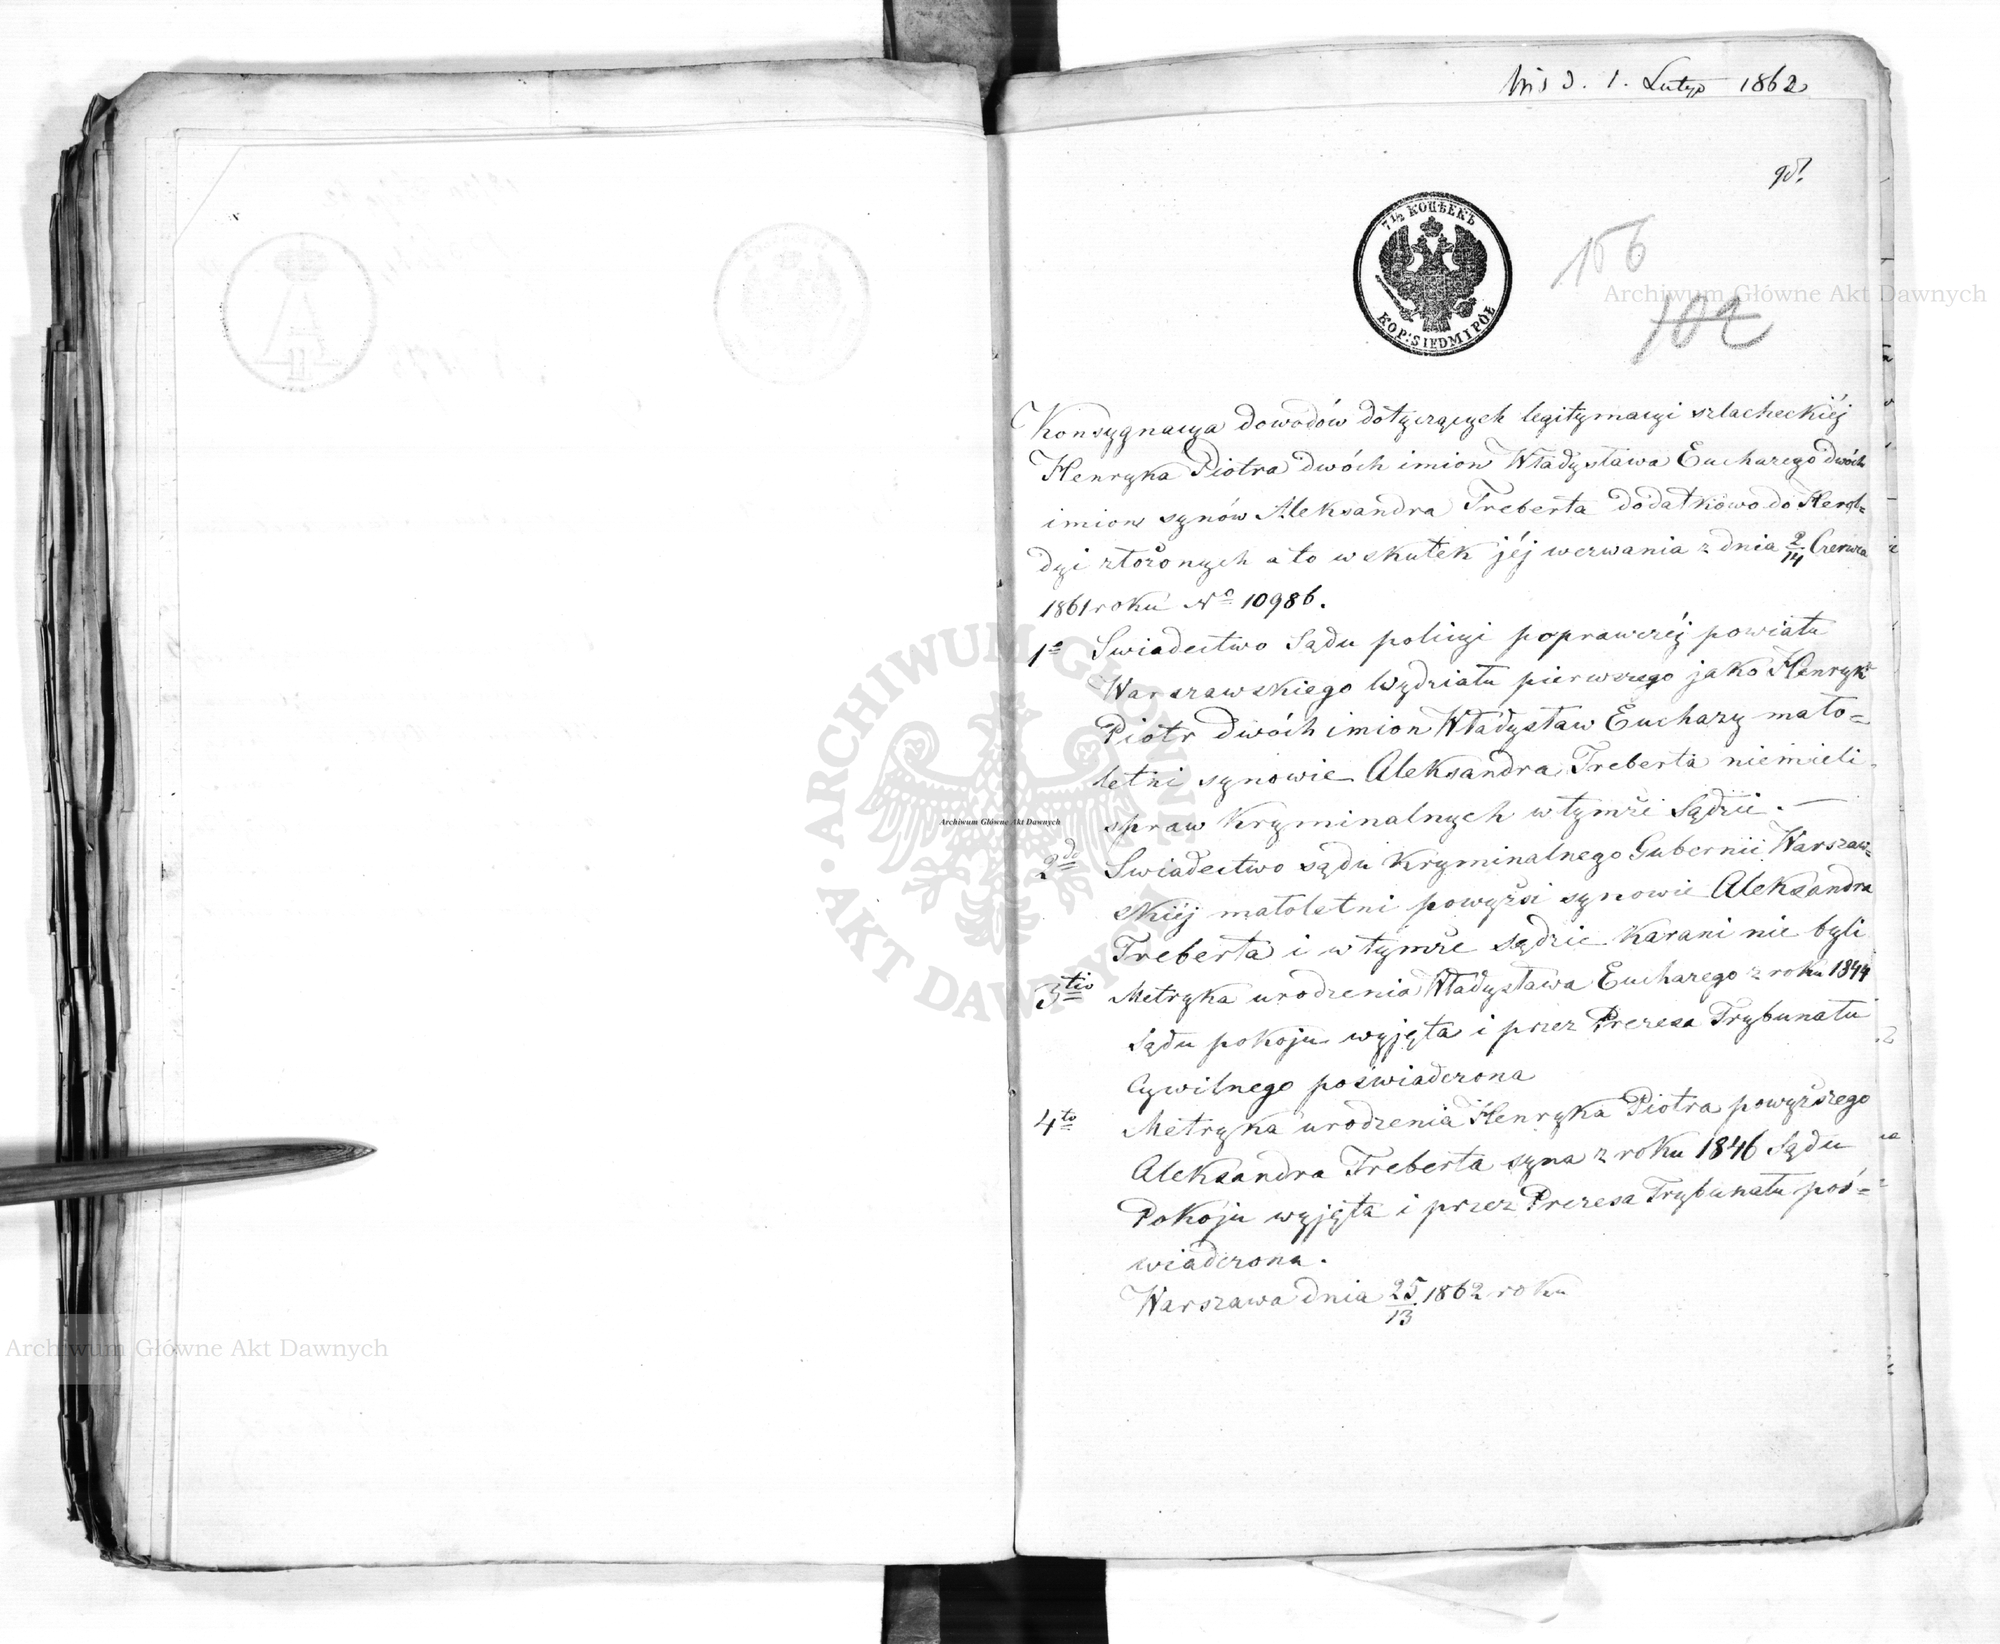 d. 1. Lutyo 1862
7 1/2 КОПѢЕКЪ
KOP: SIEDM I PÓŁ
156
102
Konsygnacya dowodów dotyczących legitymacyi szlacheckiéj
Henryka Piotra dwóch imion Władysława Eucharego dwóch
imion synów Aleksandra Treberta dodatkowo do Herol=
dyi złożonych a to w skutek jéj wezwania z dnia 2/14 Czerwca
1861 roku No 10986.
1o Swiadectwo Sądu policyi poprawczéj powiatu
Warszawskiego Wydziału pierwszego jako Henryk
Piotr dwóch imion Władysław Euchary mało=
letni synowie Aleksandra Treberta niemieli
spraw Kryminalnych w tymże Sądzie. —
2do Swiadectwo sądu Kryminalnego Gubernii Warszaw=
skiéj małoletni powyżsi synowie Aleksandra
Treberta i w tymże sądzie karani nie byli
3tio Metryka urodzenia Władysława Eucharego z roku 1844
Sądu pokoju wyjęta i przez Prezesa Trybunału
Cywilnego poświadczona
4to Metryka urodzenia Henryka Piotra powyższego
Aleksandra Treberta syna z roku 1846 Sądu
Pokoju wyjęta i przez Prezesa Trybunału poś=
wiadczona.
Warszawa dnia 25/13 1862 roku
ARCHIWUM GŁÓWNE AKT DAWNYCH
Archiwum Główne Akt Dawnych
Archiwum Główne Akt Dawnych
Archiwum Główne Akt Dawnych